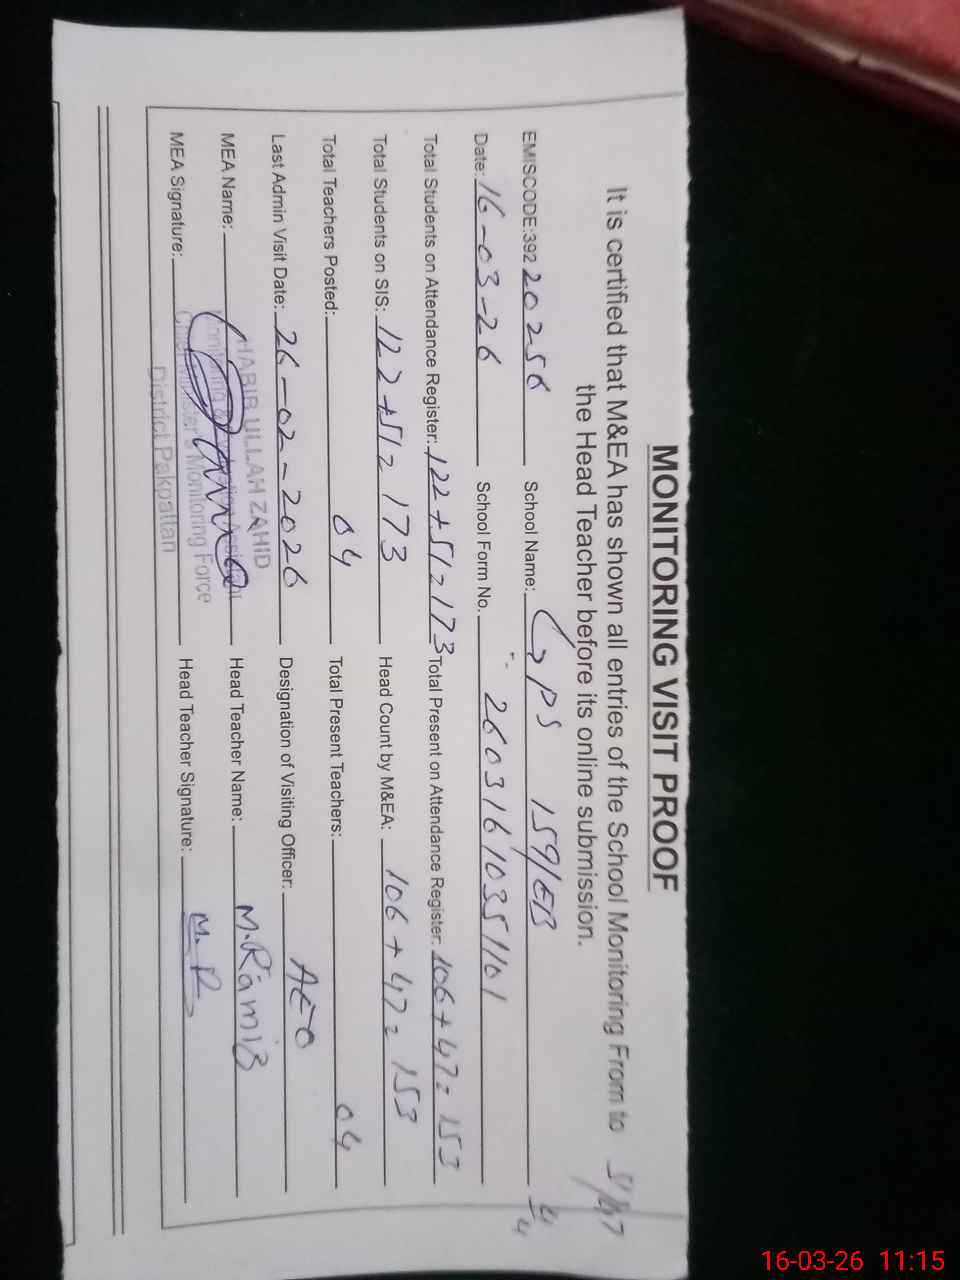 MONITORING VISIT PROOF
It is certified that M&EA has shown all entries of the School Monitoring From to
the Head Teacher before its online submission.
EMISCODE:392 20256 School Name: GPS 159/EB
Date: 16-03-26 School Form No. 26031610351101
Total Students on Attendance Register: 122+51=173 Total Present on Attendance Register: 106+47=153
Total Students on SIS: 122+51=173 Head Count by M&EA: 106+47=153
Total Teachers Posted: 04 Total Present Teachers: 04
Last Admin Visit Date: 26-02-2026 Designation of Visiting Officer: AEO
MEA Name: HABIB ULLAH ZAHID Head Teacher Name: M.Ramis
MEA Signature: Head Teacher Signature: M.R
Monitoring
Chief Minister's Monitoring Force
District Pakpattan
16-03-26 11:15